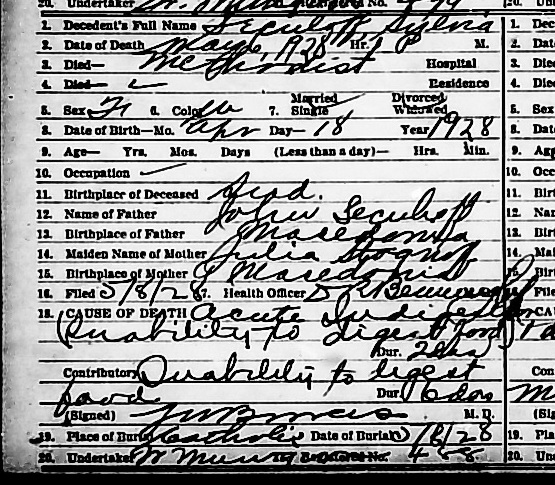 20. Undertaker No. 479
1. Decedent's Full Name Seculoff, Sylvia
2. Date of Death May 6, 1928 Hr. P M.
3. Died— Methodist Hospital
4. Died— Residence
5. Sex F 6. Color W 7. Married Single Divorced Widowed
8. Date of Birth—Mo. Apr Day— 18 Year 1928
9. Age— Yrs. Mos. Days (Less than a day)— Hrs. Min.
10. Occupation
11. Birthplace of Deceased Ind.
12. Name of Father John Seculoff
13. Birthplace of Father Macedonia
14. Maiden Name of Mother Julia
15. Birthplace of Mother Macedonia
16. Filed 5/8/28 17. Health Officer
18. CAUSE OF DEATH Acute Indigestion
(Inability to digest food)
Dur. 2 hrs
Contributory Inability to digest
food Dur. 6 das
(Signed) M. D.
19. Place of Burial Catholic Date of Burial 5/8/28
20. Undertaker Registered No. 488
1.
2. Dat
3. Died
4. Died
5. Sex
8. Date
9. Age
10. Occ
11. Birt
12. Nam
13. Birt
14. Mai
15. Birt
Filed
CAU
Con
(Sig
19. Place
20. Und